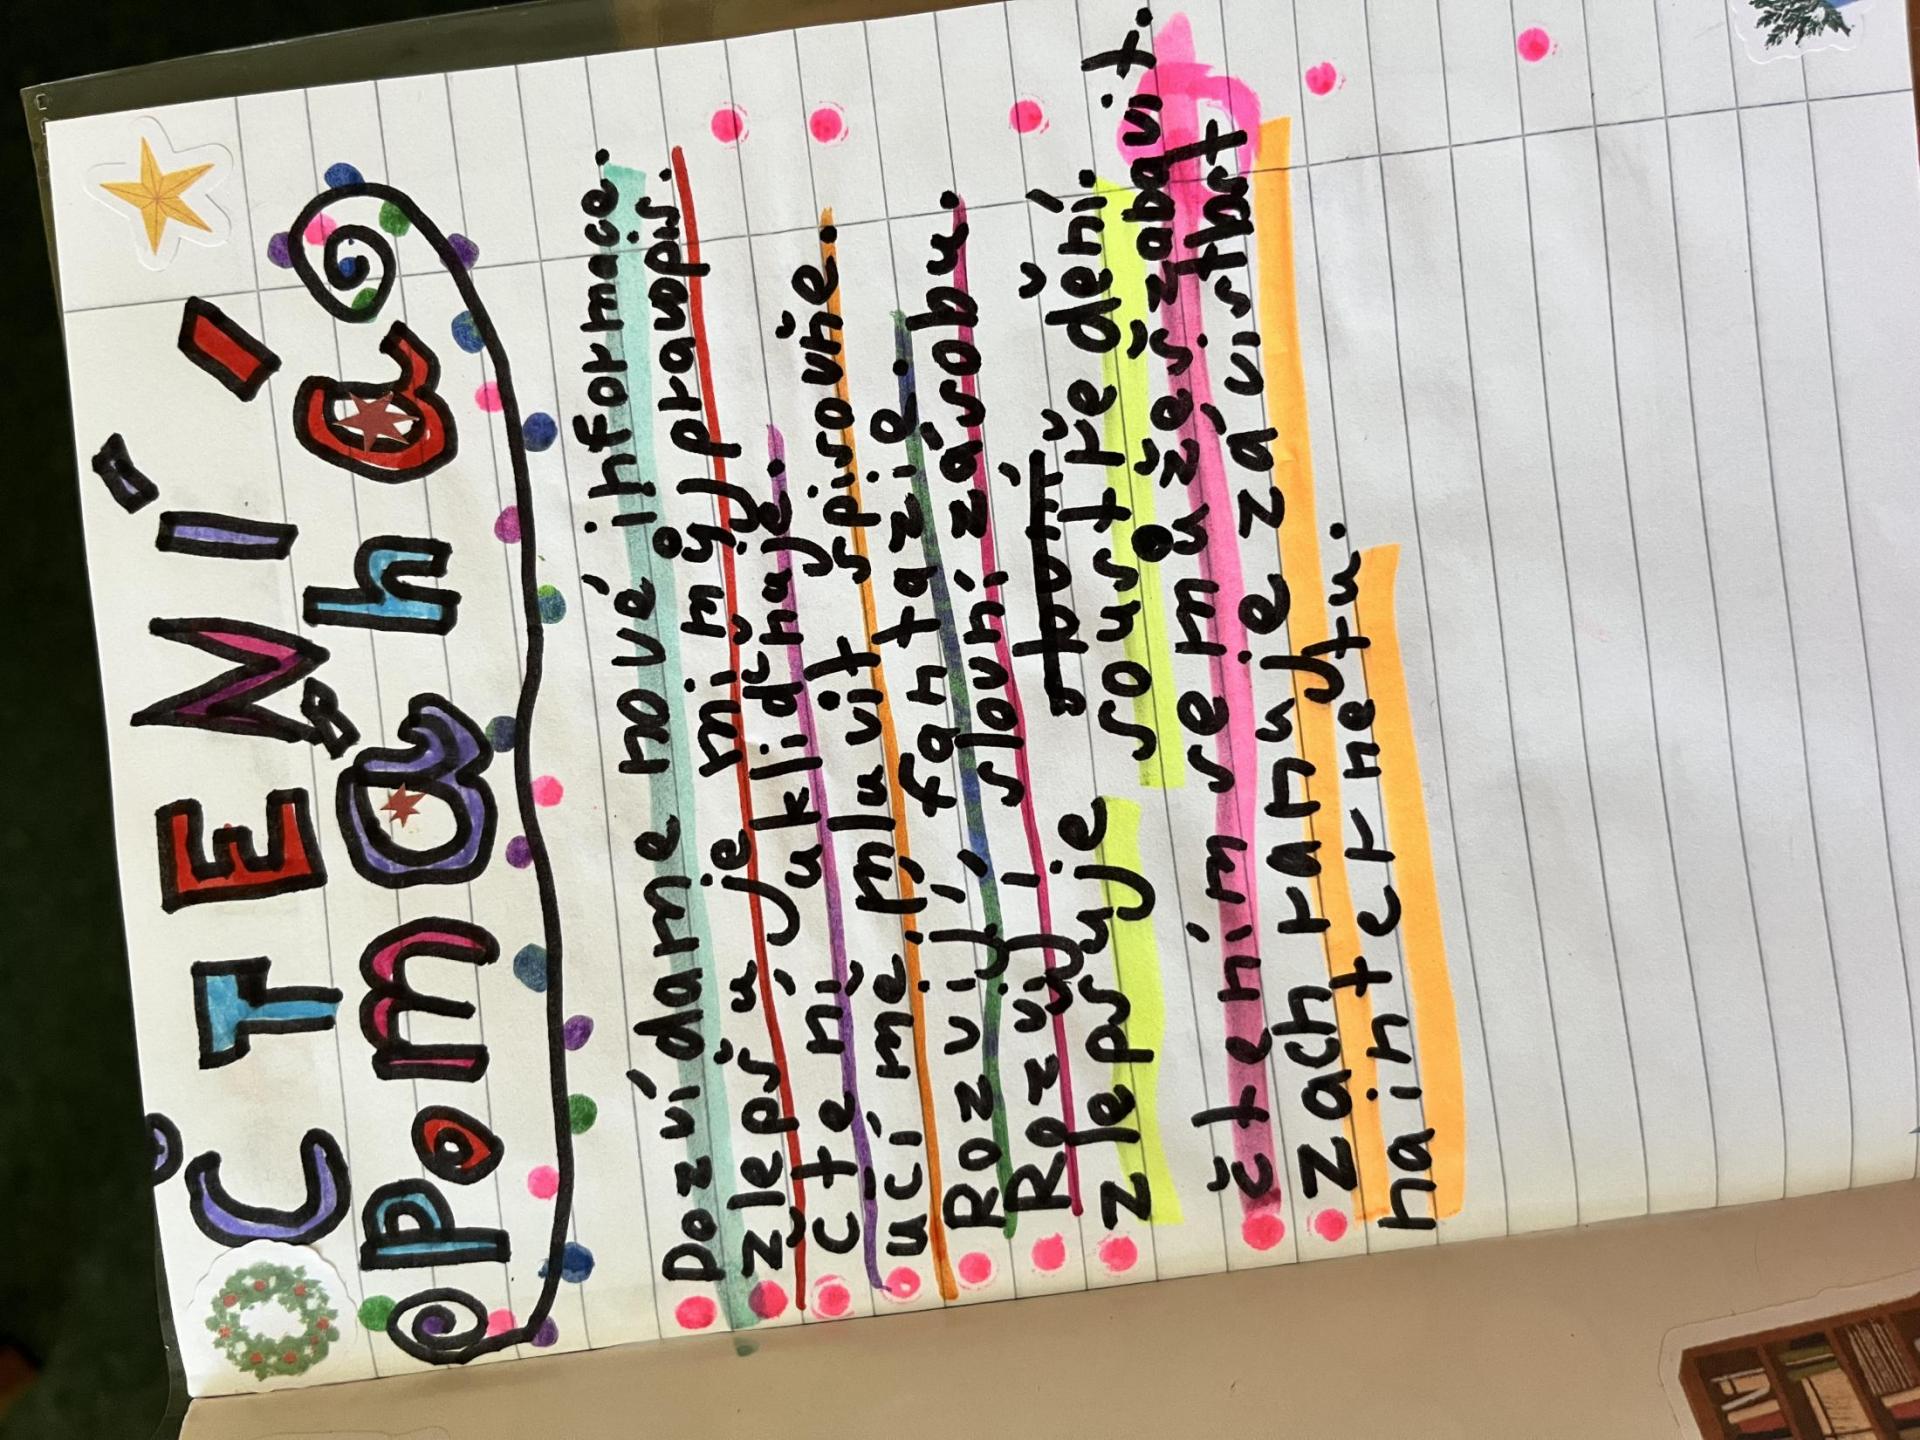 ČTENÍ
pomáhá
Dozvídáme nové informace.
zlepšuje mi můj pravopis.
čtení uklidňuje.
učí mě mluvit spisovně.
Rozvíjí fantazii.
Rozvíjí slovní zásobu.
zlepšuje soustředění.
čtením se můžeš zabavit.
zachraňuje závislost
na internetu.